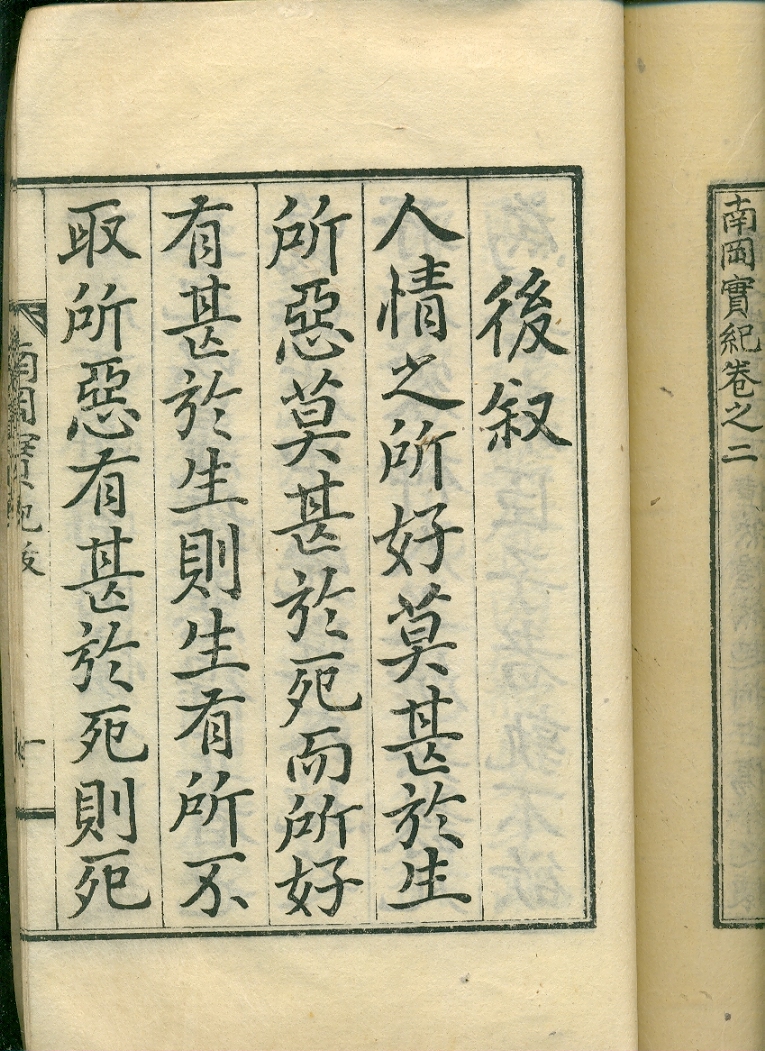 南岡實紀卷之二
後叙
人情之所好莫甚於生
所惡莫甚於死而所好
有甚於生則生有所不
取所惡有甚於死則死
南岡實紀